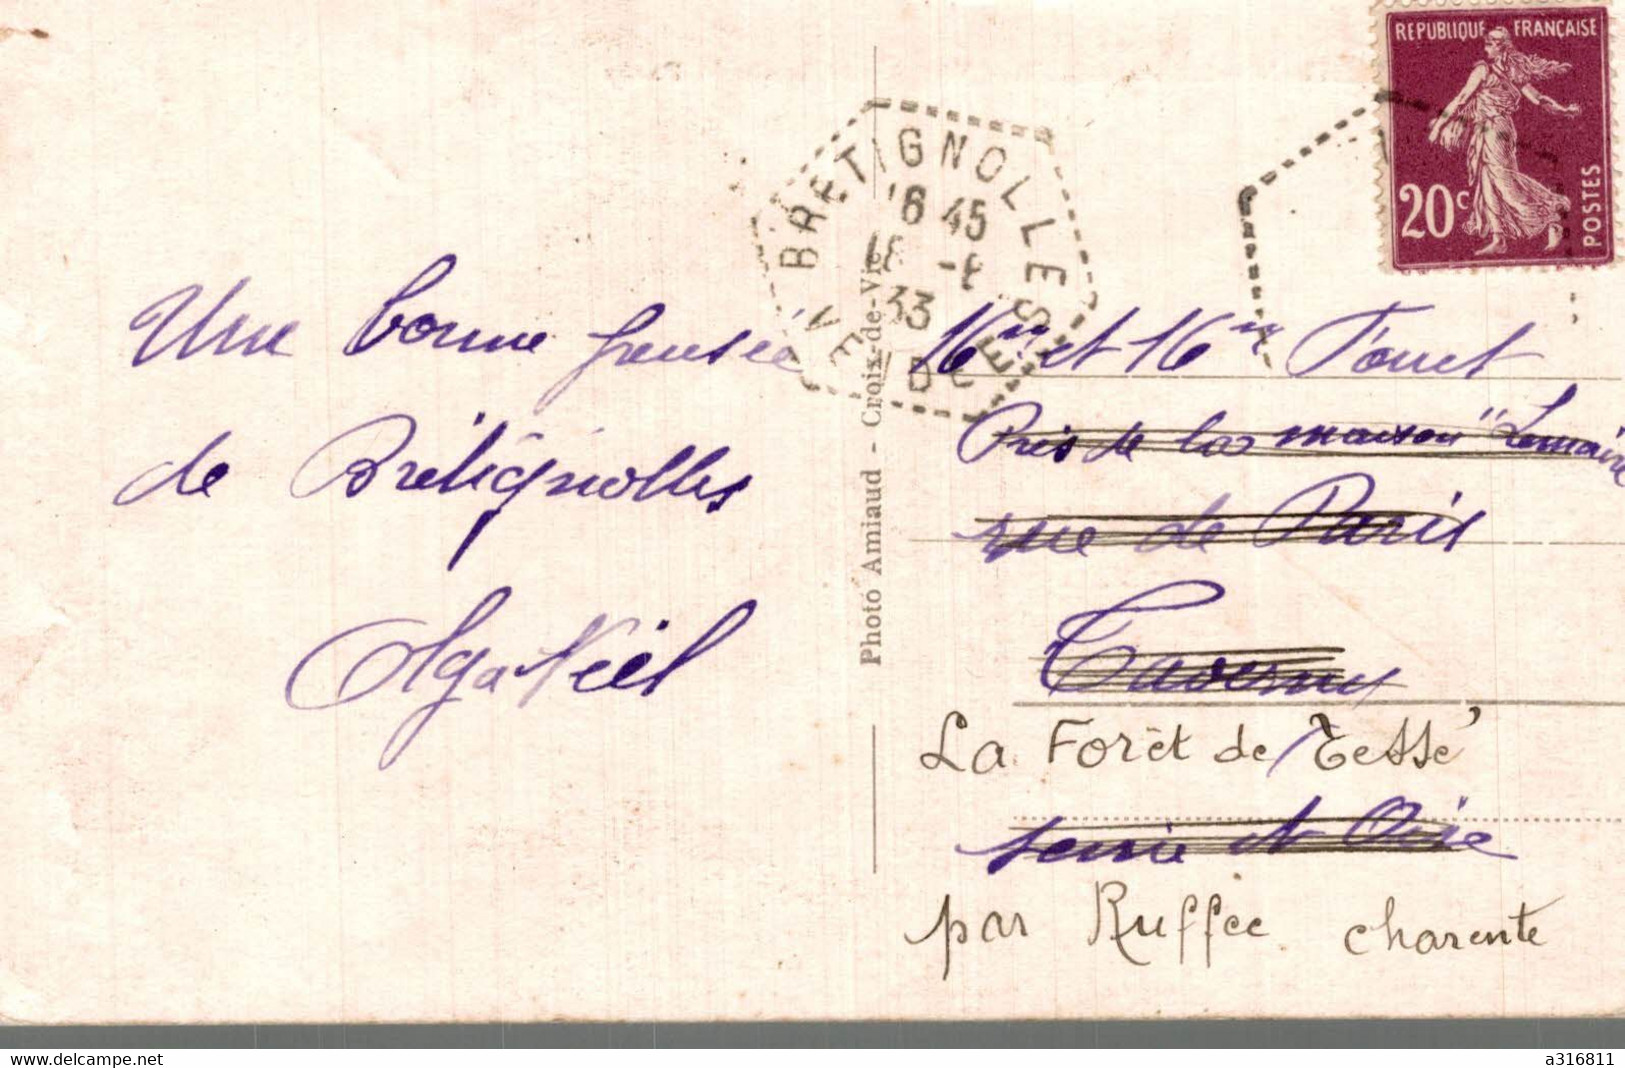 REPUBLIQUE FRANÇAISE
20c
POSTES
BRETIGNOLLES
16 45
33
VENDEE
Une bonne pensée
de Brétignolles
Olga Néel
Photo Amiaud - Croix-de-Vie
Mr et Mme
Près de la maison "Lemaire
rue de Paris
Taverny
La Forêt de Tessé
Seine et Oise
par Ruffec charente
www.delcampe.net
a316811